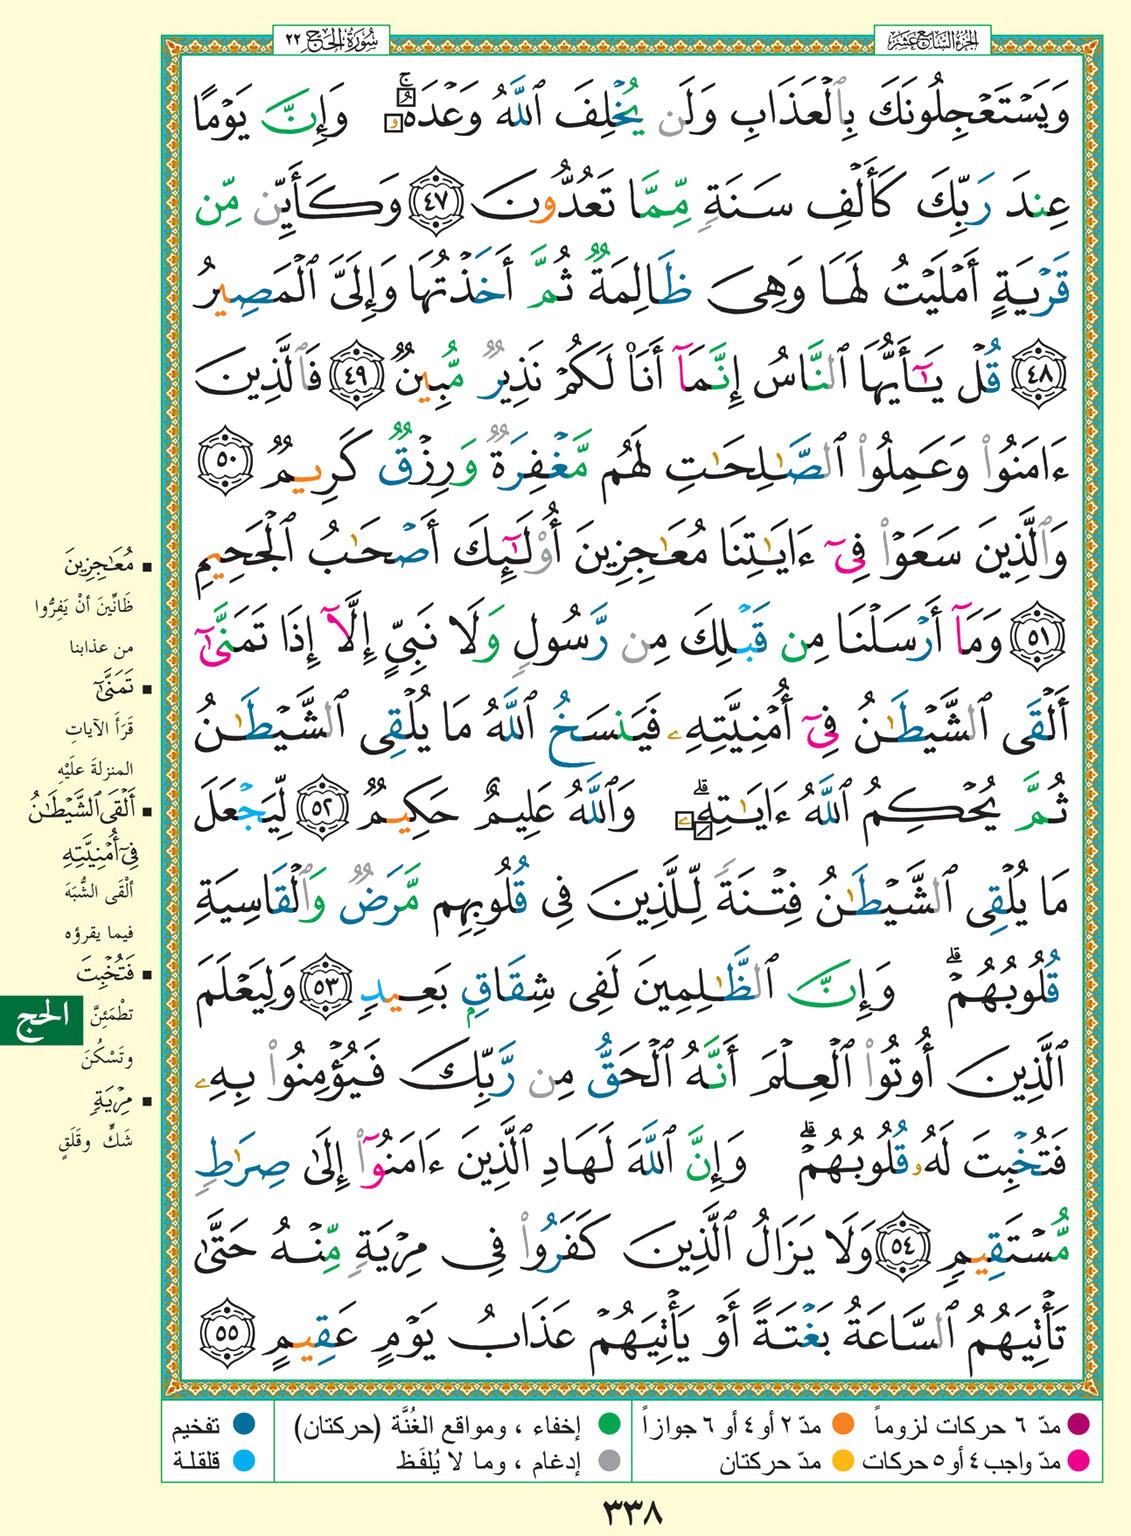 الجزء السابع عشر
سورة الحج ٢٢
وَيَسْتَعْجِلُونَكَ بِٱلْعَذَابِ وَلَن يُخْلِفَ ٱللَّهُ وَعْدَهُۥ ۚ وَإِنَّ يَوْمًا
عِندَ رَبِّكَ كَأَلْفِ سَنَةٍ مِّمَّا تَعُدُّونَ ٤٧ وَكَأَيِّن مِّن
قَرْيَةٍ أَمْلَيْتُ لَهَا وَهِىَ ظَالِمَةٌ ثُمَّ أَخَذْتُهَا وَإِلَىَّ ٱلْمَصِيرُ
٤٨ قُلْ يَـٰٓأَيُّهَا ٱلنَّاسُ إِنَّمَآ أَنَا۠ لَكُمْ نَذِيرٌ مُّبِينٌ ٤٩ فَٱلَّذِينَ
ءَامَنُوا۟ وَعَمِلُوا۟ ٱلصَّـٰلِحَـٰتِ لَهُم مَّغْفِرَةٌ وَرِزْقٌ كَرِيمٌ ٥٠
وَٱلَّذِينَ سَعَوْا۟ فِىٓ ءَايَـٰتِنَا مُعَـٰجِزِينَ أُو۟لَـٰٓئِكَ أَصْحَـٰبُ ٱلْجَحِيمِ
٥١ وَمَآ أَرْسَلْنَا مِن قَبْلِكَ مِن رَّسُولٍ وَلَا نَبِىٍّ إِلَّآ إِذَا تَمَنَّىٰٓ
أَلْقَى ٱلشَّيْطَـٰنُ فِىٓ أُمْنِيَّتِهِۦ فَيَنسَخُ ٱللَّهُ مَا يُلْقِى ٱلشَّيْطَـٰنُ
ثُمَّ يُحْكِمُ ٱللَّهُ ءَايَـٰتِهِۦ ۗ وَٱللَّهُ عَلِيمٌ حَكِيمٌ ٥٢ لِّيَجْعَلَ
مَا يُلْقِى ٱلشَّيْطَـٰنُ فِتْنَةً لِّلَّذِينَ فِى قُلُوبِهِم مَّرَضٌ وَٱلْقَاسِيَةِ
قُلُوبُهُمْ ۗ وَإِنَّ ٱلظَّـٰلِمِينَ لَفِى شِقَاقٍۭ بَعِيدٍ ٥٣ وَلِيَعْلَمَ
ٱلَّذِينَ أُوتُوا۟ ٱلْعِلْمَ أَنَّهُ ٱلْحَقُّ مِن رَّبِّكَ فَيُؤْمِنُوا۟ بِهِۦ
فَتُخْبِتَ لَهُۥ قُلُوبُهُمْ ۗ وَإِنَّ ٱللَّهَ لَهَادِ ٱلَّذِينَ ءَامَنُوٓا۟ إِلَىٰ صِرَٰطٍ
مُّسْتَقِيمٍ ٥٤ وَلَا يَزَالُ ٱلَّذِينَ كَفَرُوا۟ فِى مِرْيَةٍ مِّنْهُ حَتَّىٰ
تَأْتِيَهُمُ ٱلسَّاعَةُ بَغْتَةً أَوْ يَأْتِيَهُمْ عَذَابُ يَوْمٍ عَقِيمٍ ٥٥
▪ مُعَـٰجِزِينَ
ظَانِّينَ أنْ يَفِرُّوا
من عذابنا
▪ تَمَنَّىٰٓ
قَرَأَ الآياتِ
المنزلةَ علَيْهِ
▪ أَلْقَى ٱلشَّيْطَـٰنُ
فِىٓ أُمْنِيَّتِهِ
ألْقَى الشُّبَهَ
فيما يقرؤه
▪ فَتُخْبِتَ
تطْمَئِنَّ
وتَسْكُنَ
▪ مِرْيَةٍ
شَكٍّ وقَلَقٍ
الحج
مدّ ٦ حركات لزوماً
مدّ ٢ أو ٤ أو ٦ جوازاً
إخفاء ، ومواقع الغُنَّة (حركتان)
تفخيم
مدّ واجب ٤ أو ٥ حركات
مدّ حركتان
إدغام ، وما لا يُلفَظ
قلقلة
٣٣٨